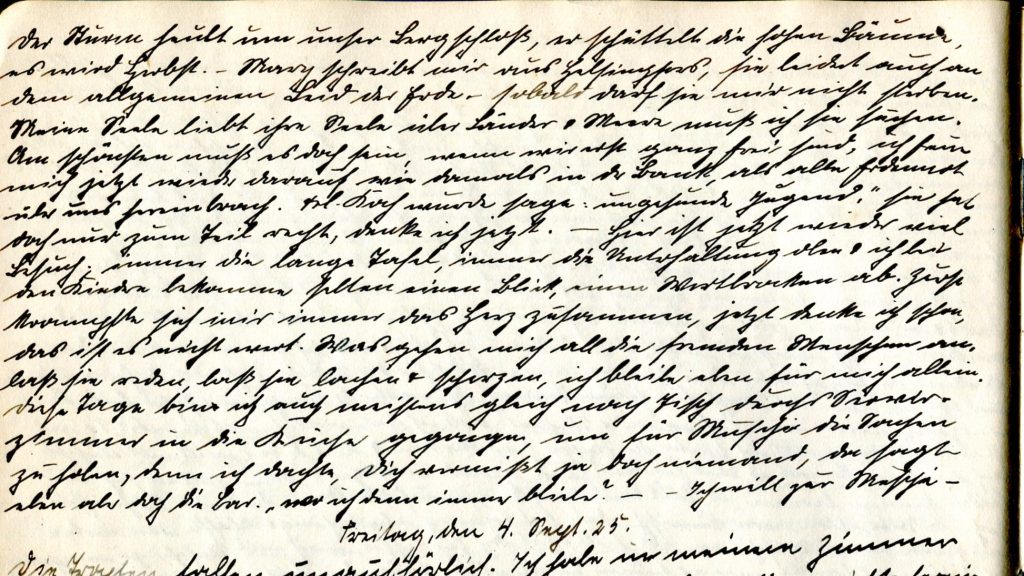 Der Sturm heult um unser Bergschloß, er schüttelt die hohen Bäume,
es wird Herbst. – Mary schreibt mir aus Helsingfors, sie leidet auch an
dem allgemeinen Leid der Erde – sobald darf sie mir nicht sterben.
Meine Seele liebt ihre Seele über Länder & Meere muß ich sie suchen.
Am schönsten muß es doch sein, wenn wir erst ganz frei sind, ich
mich jetzt wieder darauf wie damals in der Bank als alle Erdennot
über uns hereinbrach. Frl. Koch würde sage: ungesunde Jugend," sie hat
doch nur zum Teil recht, denke ich jetzt. – Hier ist jetzt wieder viel
Besuch, immer die lange Tafel, immer die Unterhaltung & ich bei
den Kindern bekomme selten einen Blick, einen Wortbrocken ab. Zuerst
krampfte sich mir immer das Herz zusammen, jetzt denke ich schon,
das ist es nicht wert. Was gehen mich all die fremden Menschen an,
laß sie reden, laß sie lachen & scherzen, ich bleibe eben für mich allein
Diese Tage bin ich auch meistens gleich nach Tisch durchs Servier-
zimmer in die Küche gegangen, um für Muschi die Sachen
zu holen, denn ich dachte, Dich vermißt ja doch niemand, da sagt
eben aber doch die Bar. „wo ich denn immer bliebe? – – Ich will zur Muschi –
Freitag, den 4. Sept. 25.
Die fallen unaufhörlich. Ich habe in meinem Zimmer